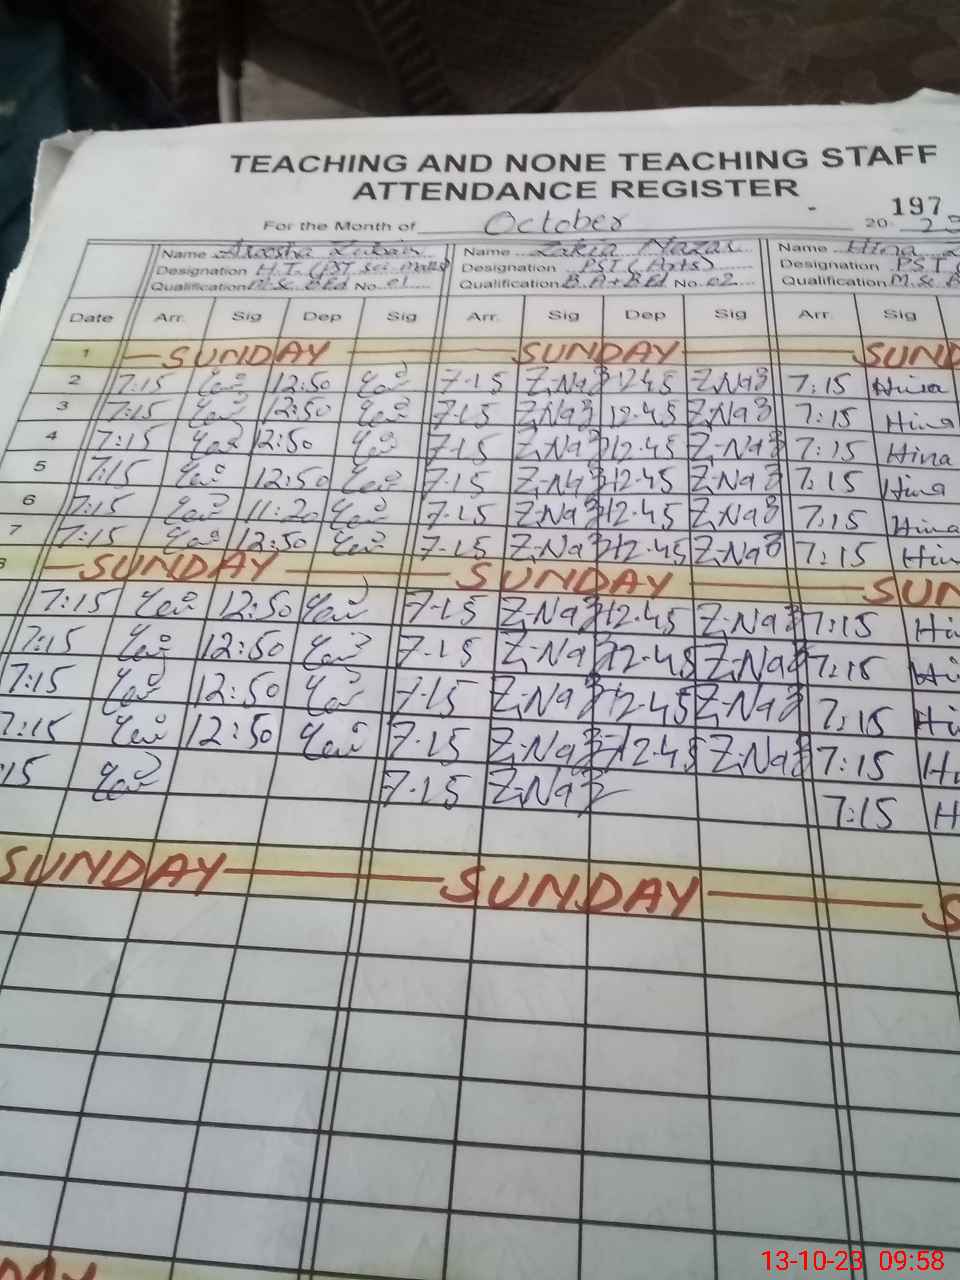 TEACHING AND NONE TEACHING STAFF
ATTENDANCE REGISTER
197
For the Month of October 20 23
Name Name Zakia Nazar Name Hina
Designation H.T. (PST Sci Maths) Designation PST (Arts) Designation PST
Qualification M.Sc. BEd No. 01 Qualification B.A + B.Ed No. 02 Qualification M.Sc.
Date Arr. Sig Dep Sig Arr. Sig Dep Sig Arr. Sig
1 SUNDAY SUNDAY SUND
2 7:15 12:50 7-15 Z.Naz 12.45 Z.Naz 7:15 Hina
3 7:15 12:50 7-15 Z.Naz 12.45 Z.Naz 7:15 Hina
4 7:15 12:50 7-15 Z.Naz 12.45 Z.Naz 7:15 Hina
5 7:15 12:50 7-15 Z.Naz 12.45 Z.Naz 7:15 Hina
6 7:15 11:20 7-15 Z.Naz 12.45 Z.Naz 7:15 Hina
7 7:15 12:50 7-15 Z.Naz 12.45 Z.Naz 7:15 Hin
8 SUNDAY SUNDAY SUN
7:15 12:50 7-15 Z.Naz 12.45 Z.Naz 7:15 Hi
7:15 12:50 7-15 Z.Naz 12.45 Z.Naz 7:15 Hi
7:15 12:50 7-15 Z.Naz 12.45 Z.Naz 7:15 Hi
7:15 12:50 7-15 Z.Naz 12.45 Z.Naz 7:15 Hi
:15 7-15 Z.Naz 7:15 H
SUNDAY SUNDAY S
DAY
13-10-23 09:58